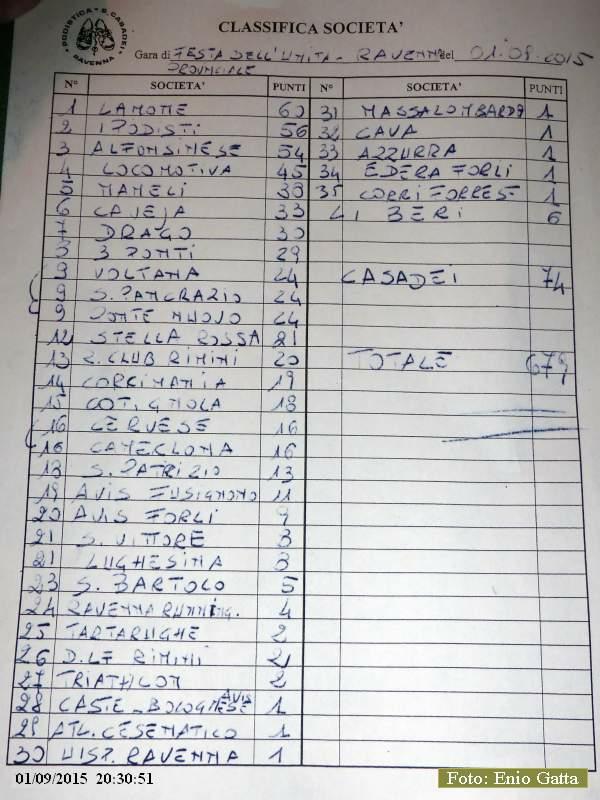 PODISTICA S. CASADEI RAVENNA
CLASSIFICA SOCIETA'
Gara di FESTA DELL'UNITA - RAVENNA del 01.09.2015
PROVINCIALE
N° SOCIETA' PUNTI N° SOCIETA' PUNTI
1 LAMONE 60 31 MASSALOMBARDA 1
2 I PODISTI 56 32 CAVA 1
3 ALFONSINESE 54 33 AZZURRA 1
4 LOCOMOTIVA 45 34 EDERA FORLI 1
5 MAMELI 39 35 CORRI FORRESE 1
6 CAVEJA 33 LI BERI 6
7 DRAGO 30
8 3 PONTI 29
9 VOLTANA 24 CASADEI 74
9 S. PANCRAZIO 24
9 PONTE NUOVO 24
12 STELLA ROSSA 21
13 R. CLUB RIMINI 20 TOTALE 679
14 CORRIMANIA 19
15 COTIGNOLA 18
16 CERVESE 16
16 CAMERLONA 16
18 S. PATRIZIO 13
19 AVIS FUSIGNANO 11
20 AVIS FORLI 9
21 S. VITTORE 8
21 LUGHESINA 8
23 S. BARTOLO 5
24 RAVENNA RUNNING. 4
25 TARTARUGHE 2
26 D.LF RIMINI 2
27 TRIATHLON 2
28 CASTE-BOLOGNESE AVIS 1
29 ATL. CESENATICO 1
30 UISP. RAVENNA 1
01/09/2015 20:30:51
Foto: Enio Gatta